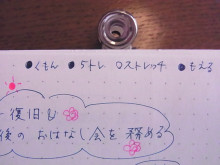 ●くもん ●5トレ □ストレッチ ●もえる
復旧も
後の おはなし会を 務める